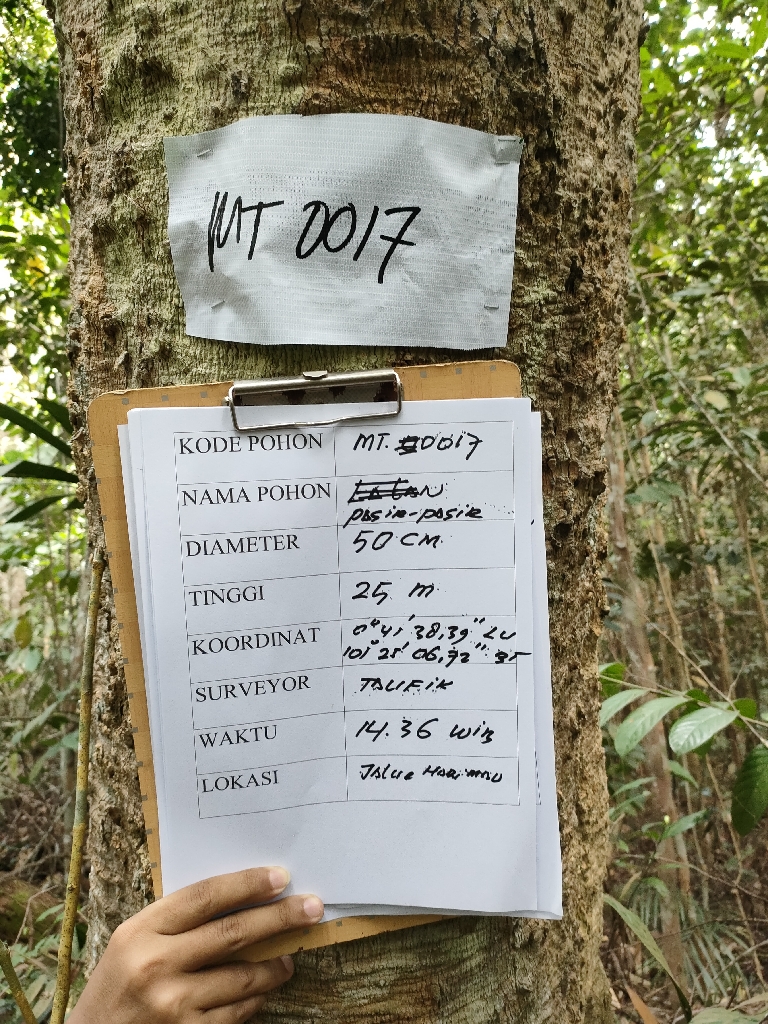 MT 0017
KODE POHON MT. 0017
NAMA POHON
pasir-pasir
DIAMETER 50 CM
TINGGI 25 m
KOORDINAT 0° 41' 38,39" LU
101° 25' 06,92" BT
SURVEYOR TAUFIK
WAKTU 14.36 WIB
LOKASI JALUR HARIMAU